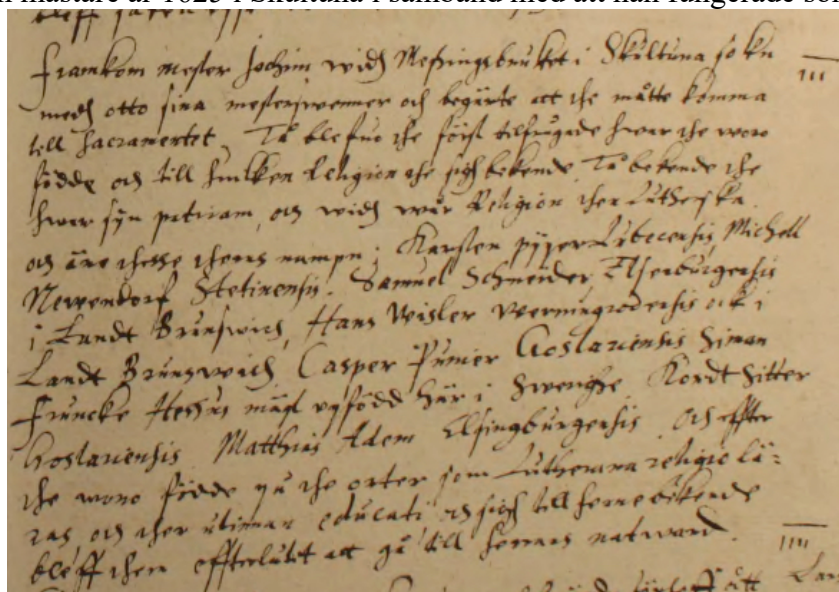 mästare år 1623 i Skultuna i samband med att han fungerade
bleff
Framkom mester Jochim widh Messingsbruket i Skultuna
medh otto sina mesterswenner och begärte att the måtte komma
till Sacramentet. Tå blefuo the först tilfrågade hwar the woro
födde och till huilken Religion the sigh bekende. Tå bekende the
hwar syn patriam, och widh wår Religion then Lutherska.
och äre thesse theres nampn: Karsten pijper Lubecensis, Michell
Newendorf Stetinensis. Samuel Schneider Elsenburgensis
i Landt Brunswich, Hans Wisler Werningrodensis ock i
Landt Brunswich Casper Pumer Goslariensis Siman
Francke Hessus mäst upfödd här i Swerighe Kordt Sitter
Goslariensis Matthias Adem Elsingburgensis och effter
the woro födde på the orter som Lutherana religio lä-
ras och ther utinnan educati och sigh till henne bekende
bleff them effterlåtit att gå till herrans natward.